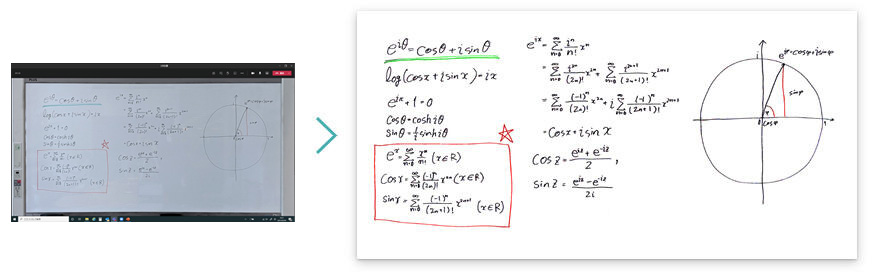 e^{iθ} = cosθ + i sinθ
log(cosx + i sinx) = ix
e^{iπ} + 1 = 0
cosθ = cosh iθ
sinθ = \frac{1}{i} sinh iθ
e^x = \sum_{n=0}^{∞} \frac{x^n}{n!} (x∈R)
cosx = \sum_{n=0}^{∞} \frac{(-1)^n}{(2n)!} x^{2n} (x∈R)
sinx = \sum_{n=0}^{∞} \frac{(-1)^n}{(2n+1)!} x^{2n+1} (x∈R)
e^{ix} = \sum_{n=0}^{∞} \frac{i^n}{n!} x^n
= \sum_{n=0}^{∞} \frac{i^{2n}}{(2n)!} x^{2n} + \sum_{n=0}^{∞} \frac{i^{2n+1}}{(2n+1)!} x^{2n+1}
= \sum_{n=0}^{∞} \frac{(-1)^n}{(2n)!} x^{2n} + i \sum_{n=0}^{∞} \frac{(-1)^n}{(2n+1)!} x^{2n+1}
= cosx + i sinx
cosz = \frac{e^{iz} + e^{-iz}}{2} ,
sinz = \frac{e^{iz} - e^{-iz}}{2i}
i
e^{iφ} = cosφ + i sinφ
sinφ
φ
0 cosφ 1